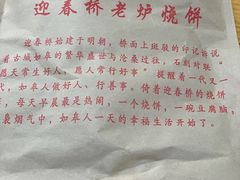 迎春桥老炉烧饼
迎春桥始建于明朝，桥面上斑驳的印记诉说
着古城如皋的繁华盛世与沧桑过往，石刻对联“
愿天常生好人，愿人常行好事”提醒着一代又一
代，如皋人做好人、行善事。倚着迎春桥的烧饼
，每天早晨最是热闹，一个烧饼，一碗豆腐脑，
袅烟气中，如皋人一天的幸福生活开始了。